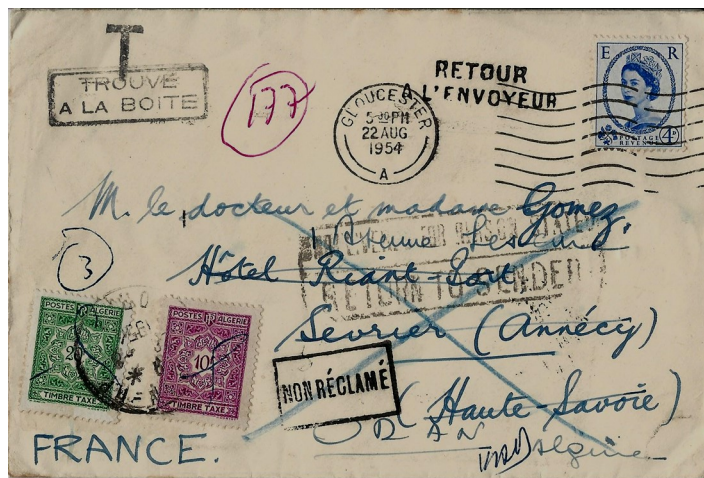 T
TROUVÉ
A LA BOITE
177
RETOUR
A L'ENVOYEUR
GLOUCESTER
5-30 PM
22 AUG
1954
A
E R
POSTAGE
REVENUE
4D
M. le docteur et madame Gomez,
Hôtel Riant-Port
RETURN TO SENDER
Sevrier (Annécy)
(Haute-Savoie)
3
POSTES ALGERIE
20
TIMBRE TAXE
POSTES ALGERIE
10
TIMBRE TAXE
NON RÉCLAMÉ
ORAN
Algérie
FRANCE.